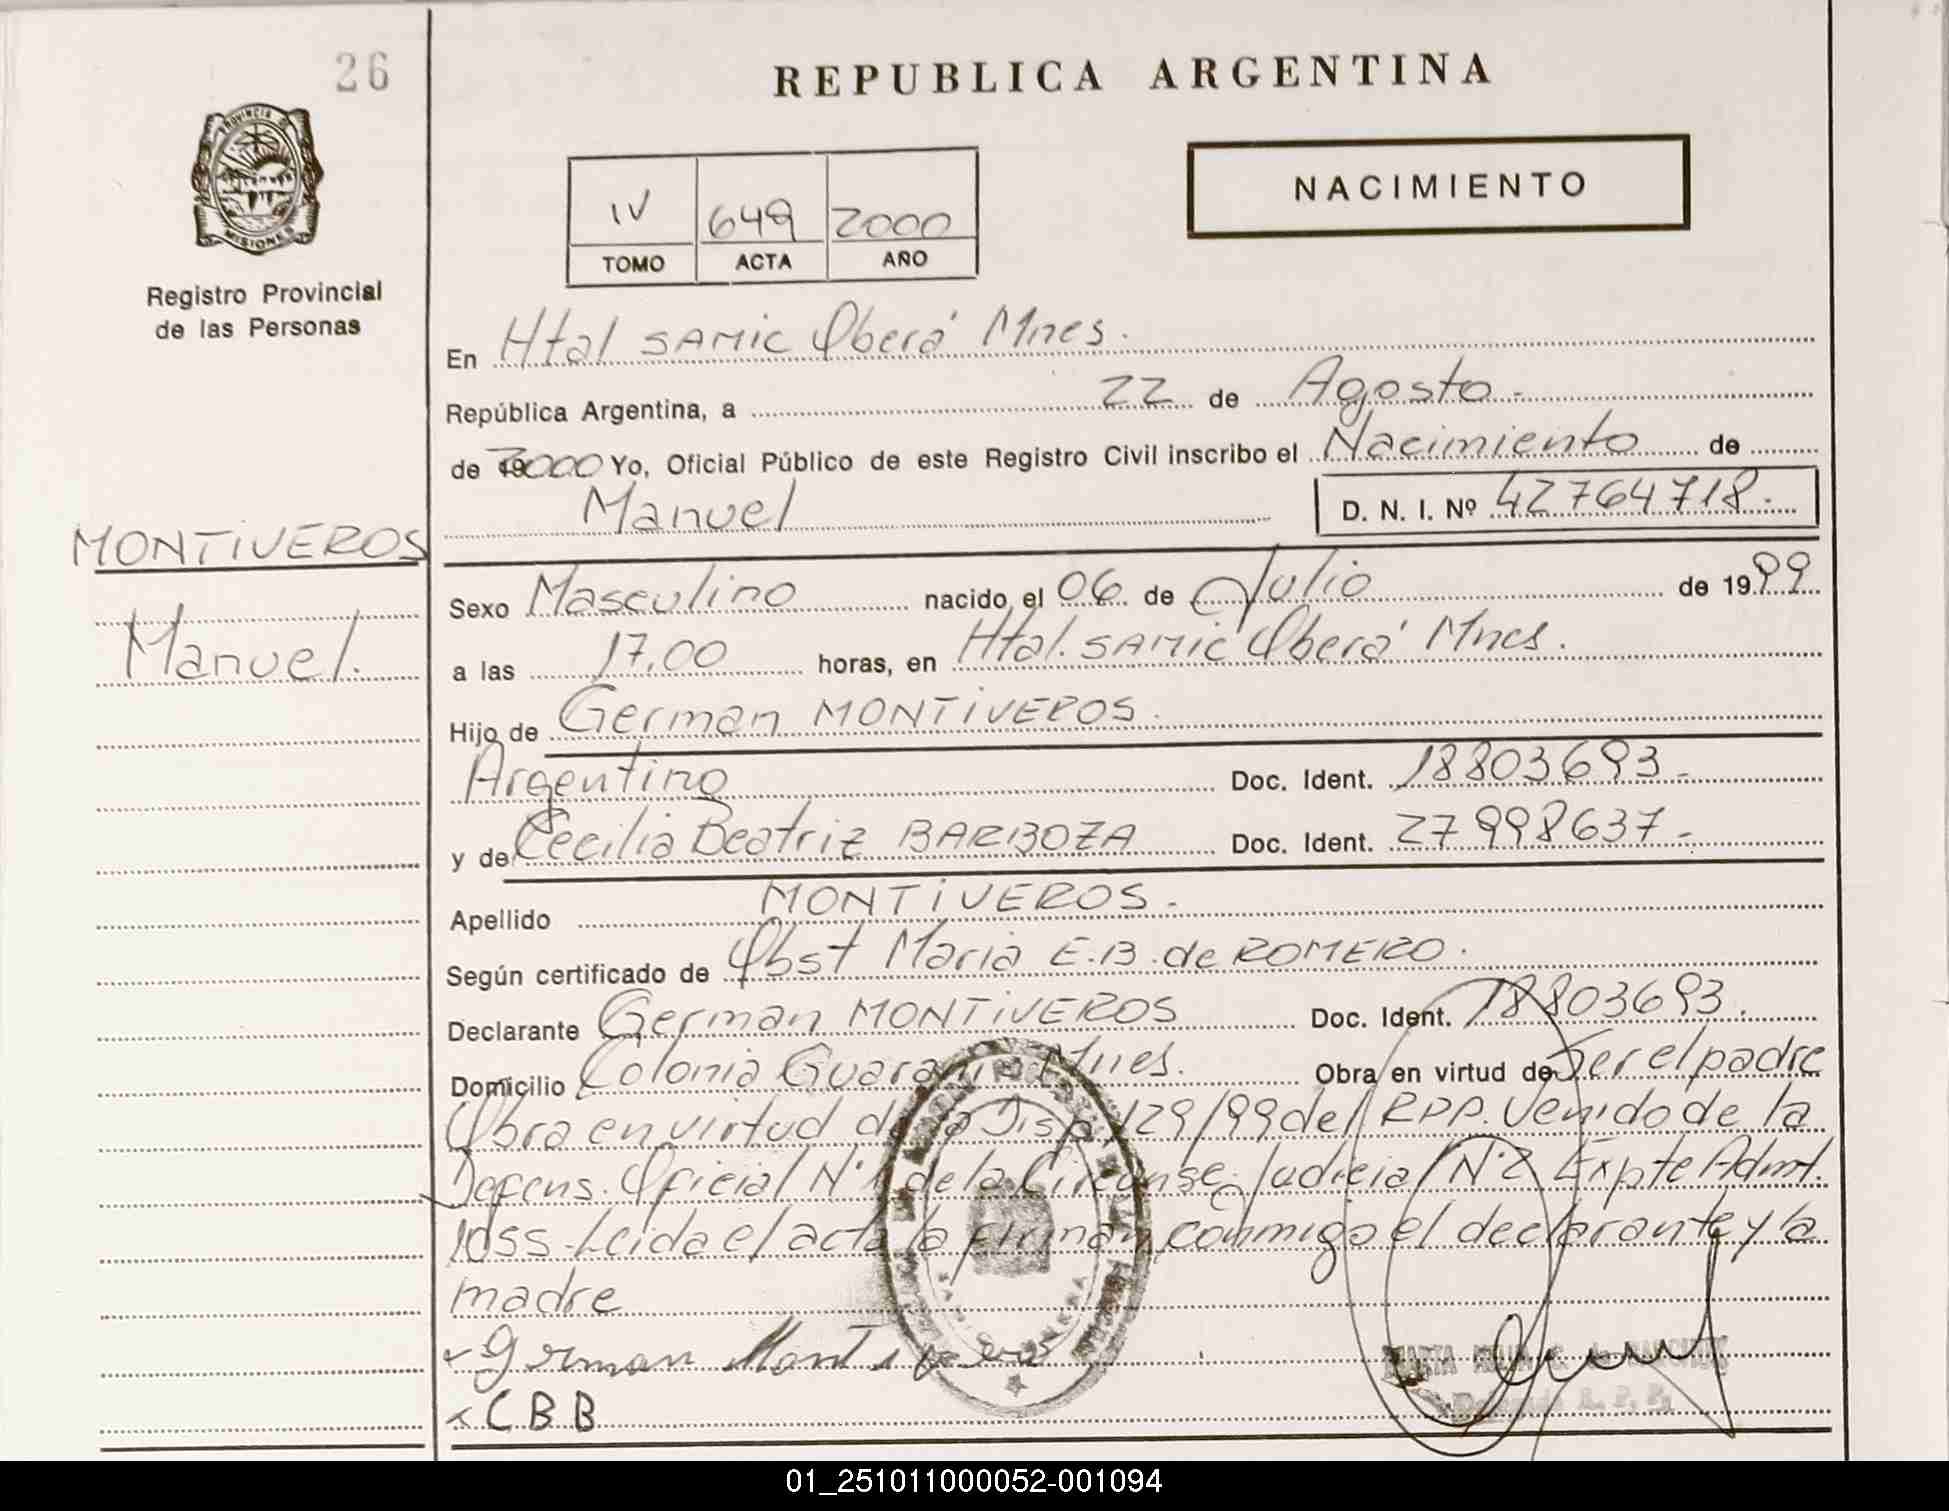 26
REPUBLICA ARGENTINA
PROVINCIA DE
MISIONES
Registro Provincial
de las Personas
IV 649 2000
TOMO ACTA AÑO
NACIMIENTO
En Htal SAMIC Oberá Mnes.
República Argentina, a 22 de Agosto.
de 2000 Yo, Oficial Público de este Registro Civil inscribo el Nacimiento de
Manuel D. N. I. Nº 42764718.
MONTIVEROS
Manuel.
Sexo Masculino nacido el 06 de Julio de 1999
a las 17.00 horas, en Htal. SAMIC Oberá Mnes.
Hijo de German MONTIVEROS.
Argentino Doc. Ident. 18803693.
y de Cecilia Beatriz BARBOZA Doc. Ident. 27998637.
Apellido MONTIVEROS.
Según certificado de Obst Maria E.B. de ROMERO.
Declarante German MONTIVEROS Doc. Ident. 18803693.
Domicilio Colonia Guarani Mnes. Obra en virtud de Ser el padre
Obra en virtud de la Disp. 129/99 del RPP. Venido de la
Defens. Oficial Nº 1 de la Circunsc. Judicial Nº 2 Expte Adm.
Leida el acta la firman conmigo el declarante y la
madre
German Montiveros
C B B
R. P. P.
01_251011000052-001094